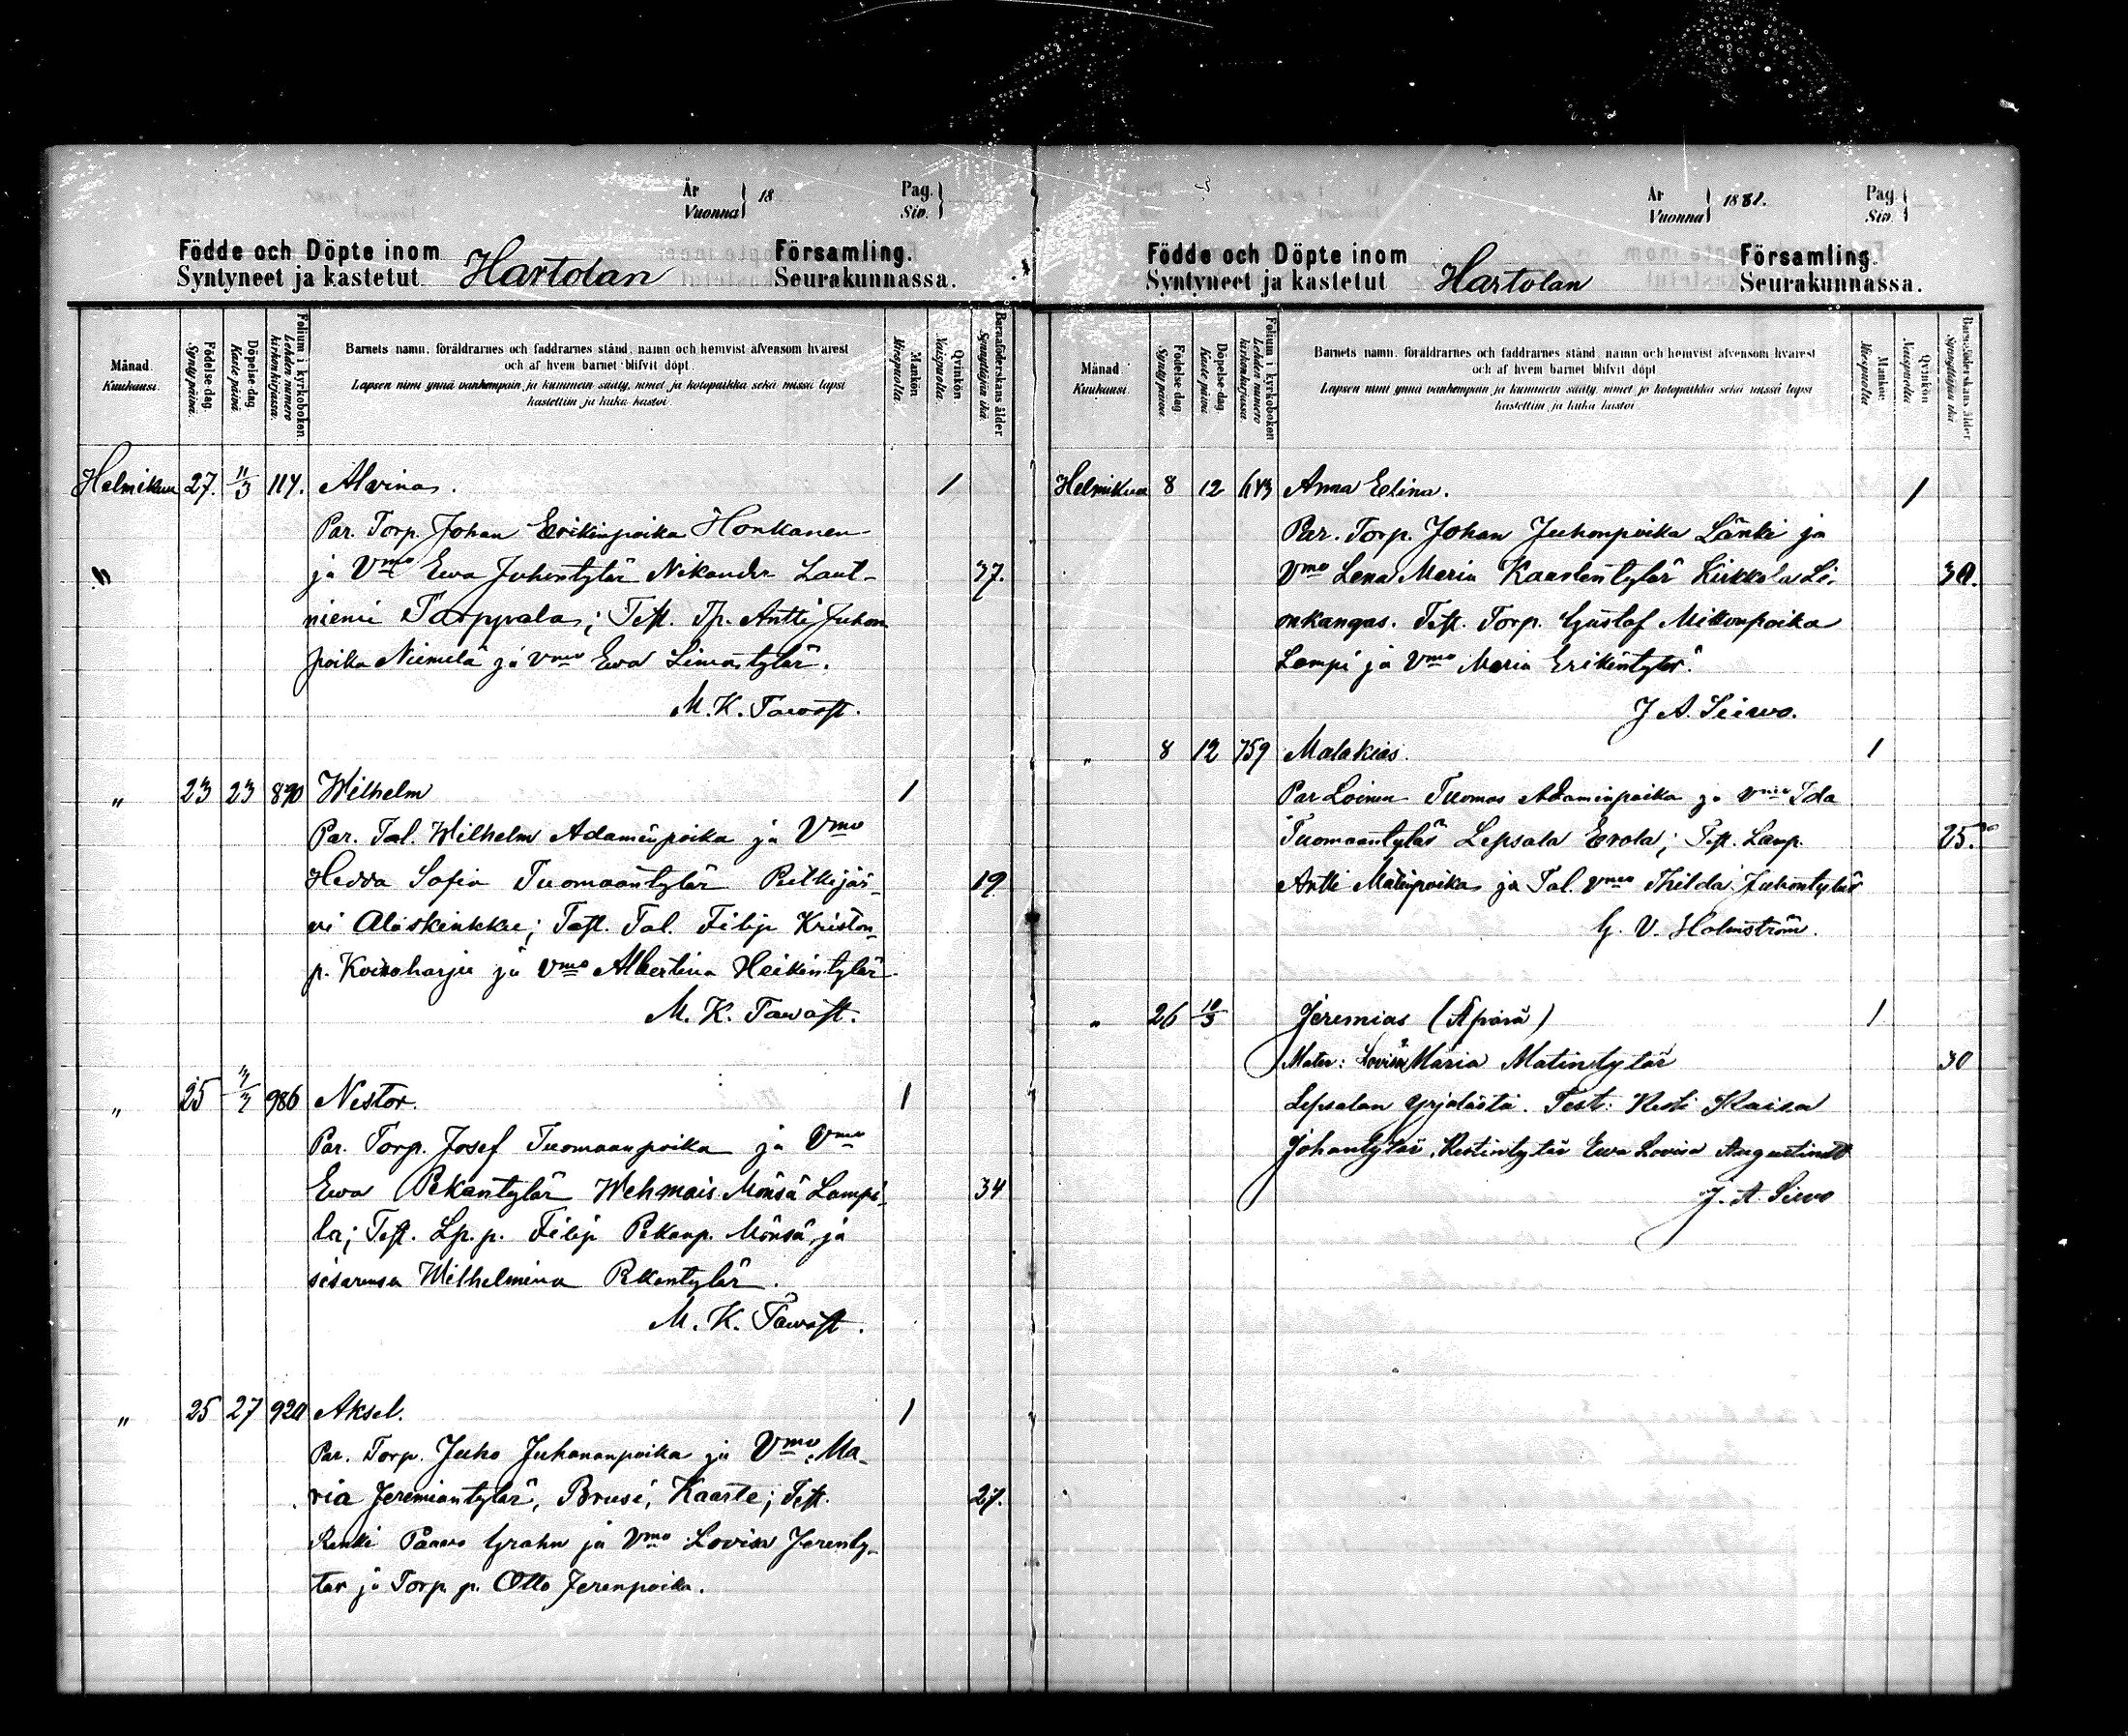 År
Vuonna
18
Pag.
Siv.
Födde och Döpte inom
Syntyneet ja kastetut
Hartolan
Församling.
Seurakunnassa.
Månad.
Kuukausi.
Födelse-dag.
Synty päivä.
Döpelse-dag.
Kaste päivä.
Folium i kyrkoboken.
Lehden numero kirkonkirjassa.
Barnets namn, föräldrarnes och faddrarnes stånd, namn och hemvist äfvensom hvarest
och af hvem barnet blifvit döpt.
Lapsen nimi ynnä vanhempain ja kummein sääty, nimet ja kotopaikka sekä missä lapsi
kastettiin ja kuka kastoi.
Mankön
Miespuolia.
Qvinkön.
Naispuolia.
Barnaföderskans ålder.
Synnyttäjän ikä.
Helmikuu 27. 11/3 114. Alvina. 1
Par. Torp. Johan Erikinpoika Honkanen
ja Vmo Ewa Juhontytär Nikander Laut- 37.
niemi Tarppala; Test. Tp. Antti Juhon
poika Niemelä ja vmo Ewa Simontytär.
M. K. Tawast.
" 23 23 890 Wilhelm 1
Par. Tal. Wilhelm Adaminpoika ja Vmo
Hedda Sofia Tuomaantytär Putkijär- 19
vi Alaskinkku; Test. Tal. Filip Kriston-
p. Koivoharju ja Vmo Albertina Heikintytär
M. K. Tawast.
" 25 3/3 986 Nestor. 1
Par. Torp. Josef Tuomaanpoika ja Vmo
Ewa Pekantytär Wehmais Mönsä Lampi- 34
la; Test. Lp. p. Filip Pekanp. Mönsä, ja
sisarensa Wilhelmina Pekantytär.
M. K. Tawast.
" 25 27 920 Aksel. 1
Par. Torp. Juho Juhananpoika ja Vmo Ma-
ria Jeremiantytär, Brusi, Kaaste; Test. 27.
Renki Paavo Grahn ja Vmo Lovisa Jerenty-
tär ja Torp. p. Otto Jerenpoika.
År
Vuonna
1881.
Pag.
Siv.
Födde och Döpte inom
Syntyneet ja kastetut
Hartolan
Församling.
Seurakunnassa.
Månad.
Kuukausi.
Födelse-dag.
Synty päivä.
Döpelse-dag.
Kaste päivä.
Folium i kyrkoboken.
Lehden numero kirkonkirjassa.
Barnets namn, föräldrarnes och faddrarnes stånd, namn och hemvist äfvensom hvarest
och af hvem barnet blifvit döpt
Lapsen nimi ynnä vanhempain ja kummein sääty, nimet ja kotopaikka sekä missä lapsi
kastettiin ja kuka kastoi.
Mankön
Miespuolia
Qvinkön
Naispuolia
Barnaföderskans ålder
Synnyttäjän ikä
Helmikuu 8 12 643 Anna Elina. 1
Par. Torp. Johan Juhonpoika Länki ja
Vmo Lena Maria Kaarlentytär Kirkkola Li- 30.
onkangas. Test. Torp. Gustaf Mikonpoika
Lampi ja Vmo Maria Erikintytär.
J A. Siivo.
" 8 12 759 Malakias. 1
Par Loinen Tuomas Adaminpoika ja vmo Ida
Tuomaantytär Lepsala Erola; Test. Lamp. 25.
Antti Matinpoika ja Tal. vmo Thilda Juhontytär
G. V. Holmström.
" 26 10/3 Jeremias (Äpärä) 1
Mater: Lovisa Maria Matintytär 30
Lepsalan Yrjölästä. Test: Kesti Kaisa
Johantytär, Kestintytär Ewa Lovisa Augustindr
J. A. Siivo